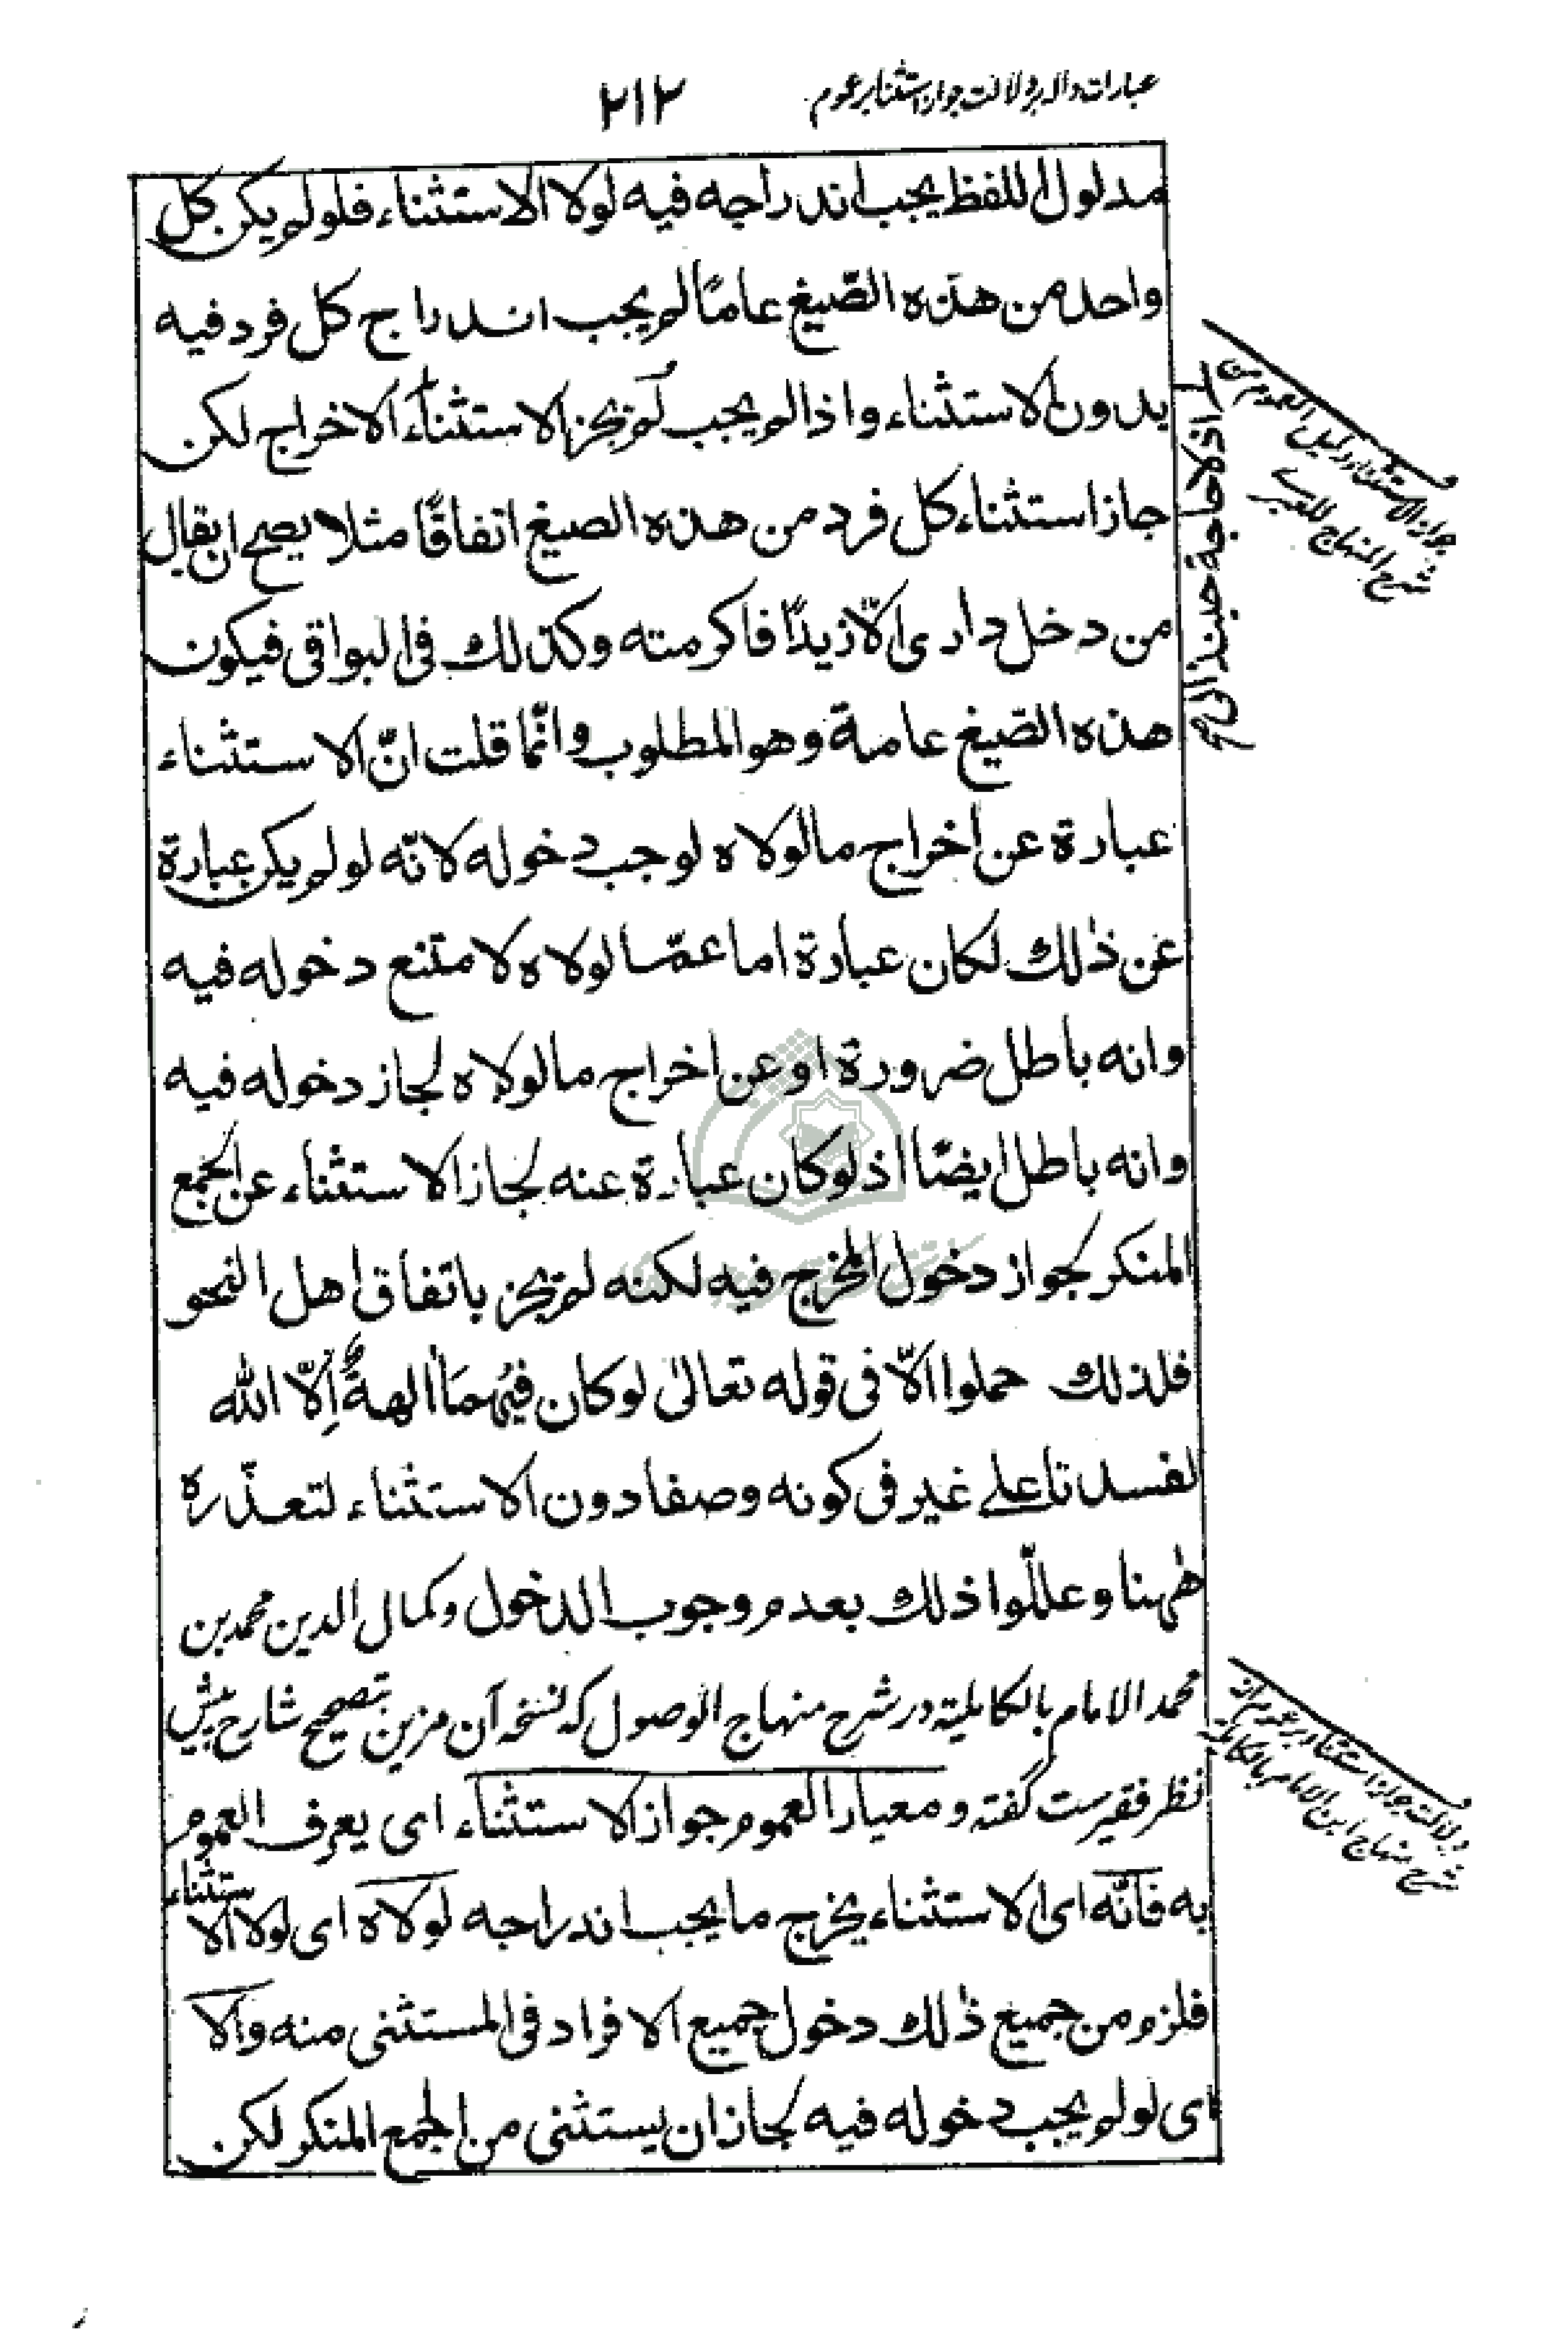 عبارات داله بر دلالت جواز استثنا بر عموم
٢١٢
مدلول اللفظ يجب اندراجه فيه لولا الاستثناء فلو لم يكن كل
واحد من هذه الصّيغ عامًا لم يجب اندراج كل فرد فيه
بدون الاستثناء واذا لم يجب لم يجز الاستثناء الاخراج لكن
جاز استثناء كل فرد من هذه الصيغ اتفاقًا مثلا يصح ان يقال
من دخل داری الّا زيدًا فاكرمته وكذلك فی البواقی فيكون
هذه الصّيغ عامة وهو المطلوب وانّما قلت انّ الاستثناء
عبارة عن اخراج ما لولاه لوجب دخوله لانّه لو لم يكن عبارة
عن ذٰلك لكان عبارة اما عمّا لولاه لامتنع دخوله فيه
وانه باطل ضرورة او عن اخراج ما لولاه لجاز دخوله فيه
وانه باطل ايضًا اذ لو كان عبارة عنه لجاز الاستثناء عن الجمع
المنكر لجواز دخول المخرج فيه لكنه لم يجز باتفاق اهل النحو
فلذلك حملوا الّا فی قوله تعالیٰ لو كان فيهما اٰلهةٌ اِلّا الله
لفسدتا علے غير فی كونه وصفا دون الاستثناء لتعذّره
هٰهنا وعللّوا ذلك بعدم وجوب الدخول وکمال الدین محمد بن
محمد الامام بالکاملیّة در شرح منهاج الوصول که نسخه آن مزین بتصحیح شارح پیش
نظر فقیر ست گفته و معيار العموم جواز الاستثناء ای يعرف العموم
به فانّه ای الاستثناء يخرج ما يجب اندراجه لولاه ای لولا الاستثناء
فلزم من جميع ذٰلك دخول جميع الافراد فی المستثنی منه والّا
ای لو لم يجب دخوله فيه لجاز ان يستثنی من الجمع المنكر لكن
اذ لا حاجة حينئذ الى
جواز الاستثناء دليل العموم من
شرح المنهاج للعبری
دلالت جواز استثنا بر عموم از
شرح منهاج ابن الامام بالکاملیه